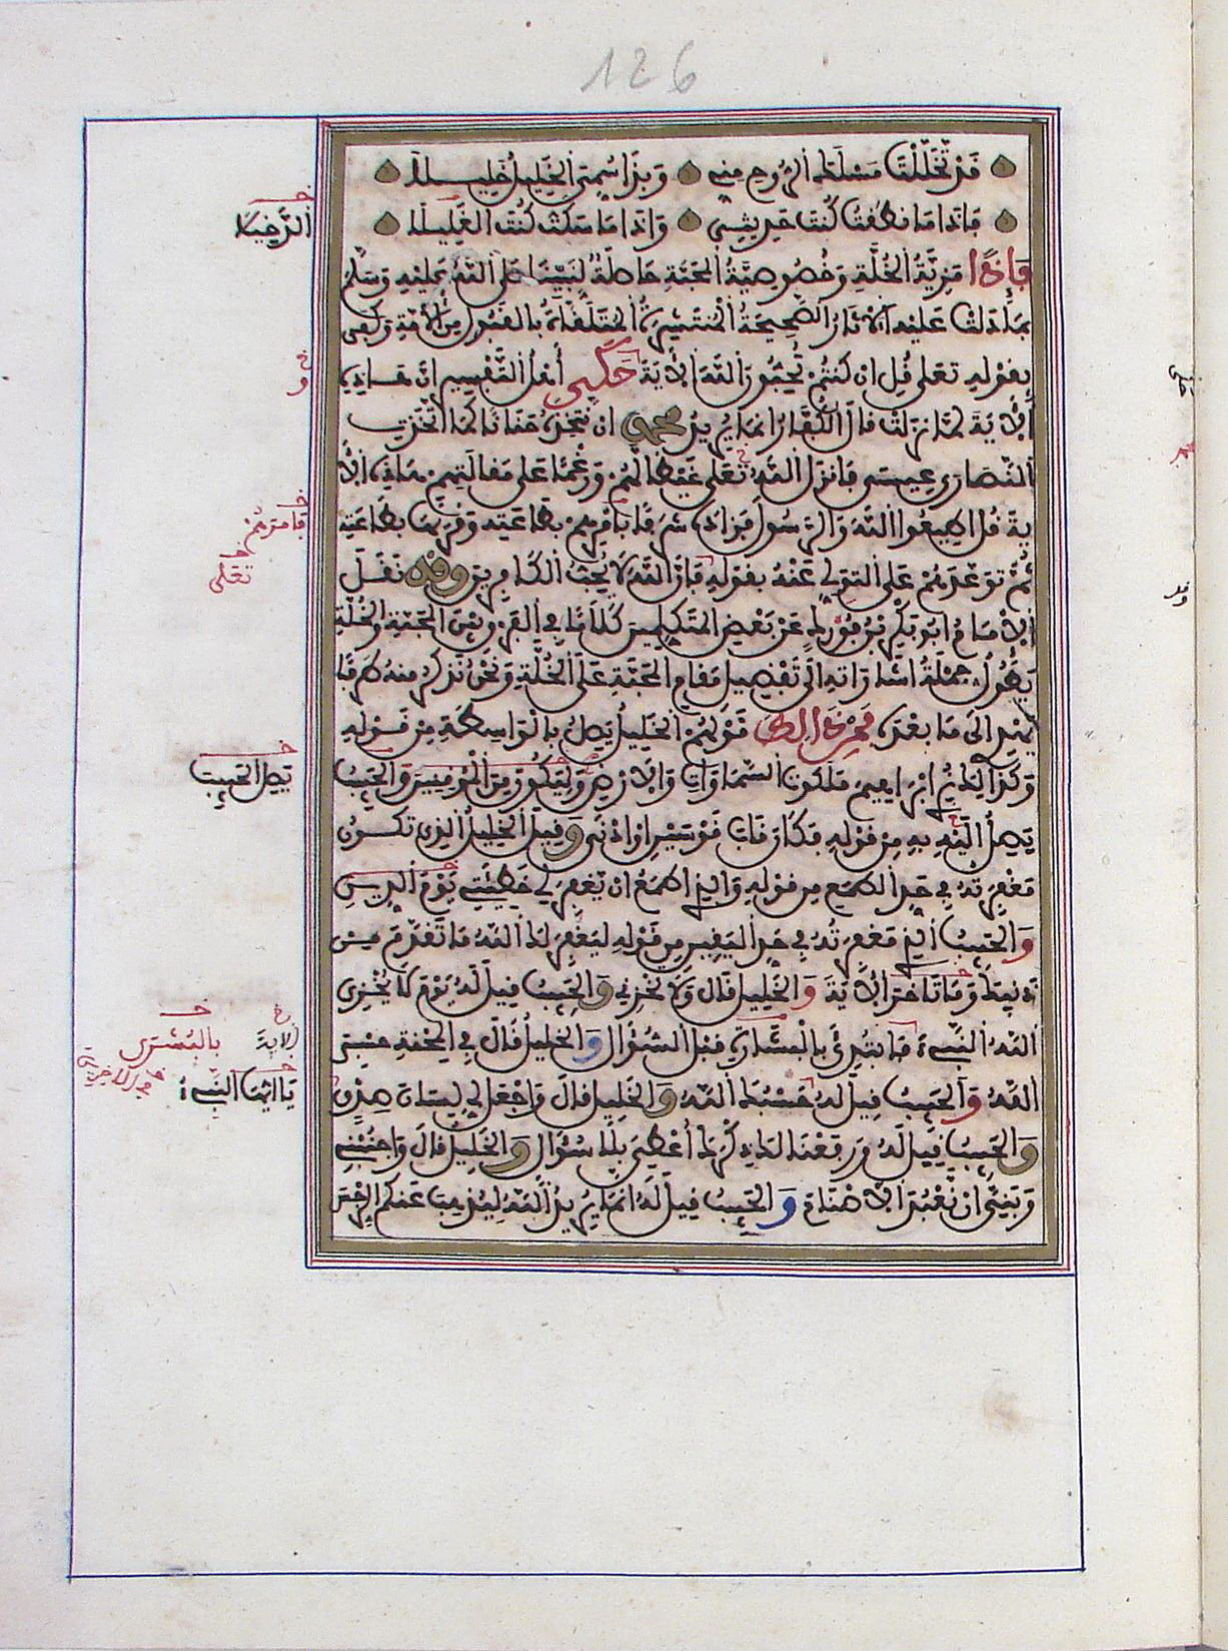 126
قد تخللت مسلك الروح مني وبذا سمي الخليل خليلا
فاذا ما نطقت كنت حديثي واذا ما سكت كنت الغليلا
الدخيلا
فاذا مزية الخلة وخصوصية المحبة حاصلة لنبينا صلى الله عليه وسلم
بما دلت عليه الاثار الصحيحة المنتشرة المتلقاة بالقبول من الامة وكفى
بقوله تعلى قل ان كنتم تحبون الله الاية حكى أهل التفسير ان هاذه
الاية لما نزلت قال الكفار انما يريد محمد ان نتخذه حنانا كما اتخذت
النصارى عيسى فانزل الله تعلى غيظا لهم ورغما على مقالتهم هاذه الا
ية قل اطيعوا الله والرسول فزاده شرفا بامرهم بطاعته وقرنها بطاعته
فامرهم
ثم توعدهم على التولي عنه بقوله فان الله لا يحب الكافرين وقد نقل
تعلى
الامام ابو بكر بن فورك عن بعض المتكلمين كلاما في الفرق بين المحبة والخلة
يطول جملة اشاراته الى تفضيل مقام المحبة على الخلة ونحن نذكر منه طرفا
يهدي الى ما بعده فمن ذالك قولهم الخليل يصل بالواسطة من قوله
وكذالك نري ابراهيم ملكوت السماوات والارض وليكون من الموقنين والحبيب
يصل الحبيب
يصل اليه به من قوله فكان قاب قوسين او ادنى وقيل الخليل الذي تكون
مغفرته في حد الطمع من قوله والذي اطمع ان يغفر لي خطيئتي يوم الدين
والحبيب الذي مغفرته في حد اليقين من قوله ليغفر لك الله ما تقدم من
ذنبك وما تاخر الاية والخليل قال ولا تخزني والحبيب قيل له يوم لا يخزي
الله النبيء فابتدئ بالبشارة قبل السؤال والخليل قال في المحنة حسبي
الاية بالبشرى
الله والحبيب قيل له حسبك الله والخليل قال واجعل لي لسان صدق
ياايها النبيء
والحبيب قيل له ورفعنا لك ذكرك أعطي بلا سؤال والخليل قال واجنبني
وبني ان نعبد الاصنام والحبيب قيل له انما يريد الله ليذهب عنكم الرجس